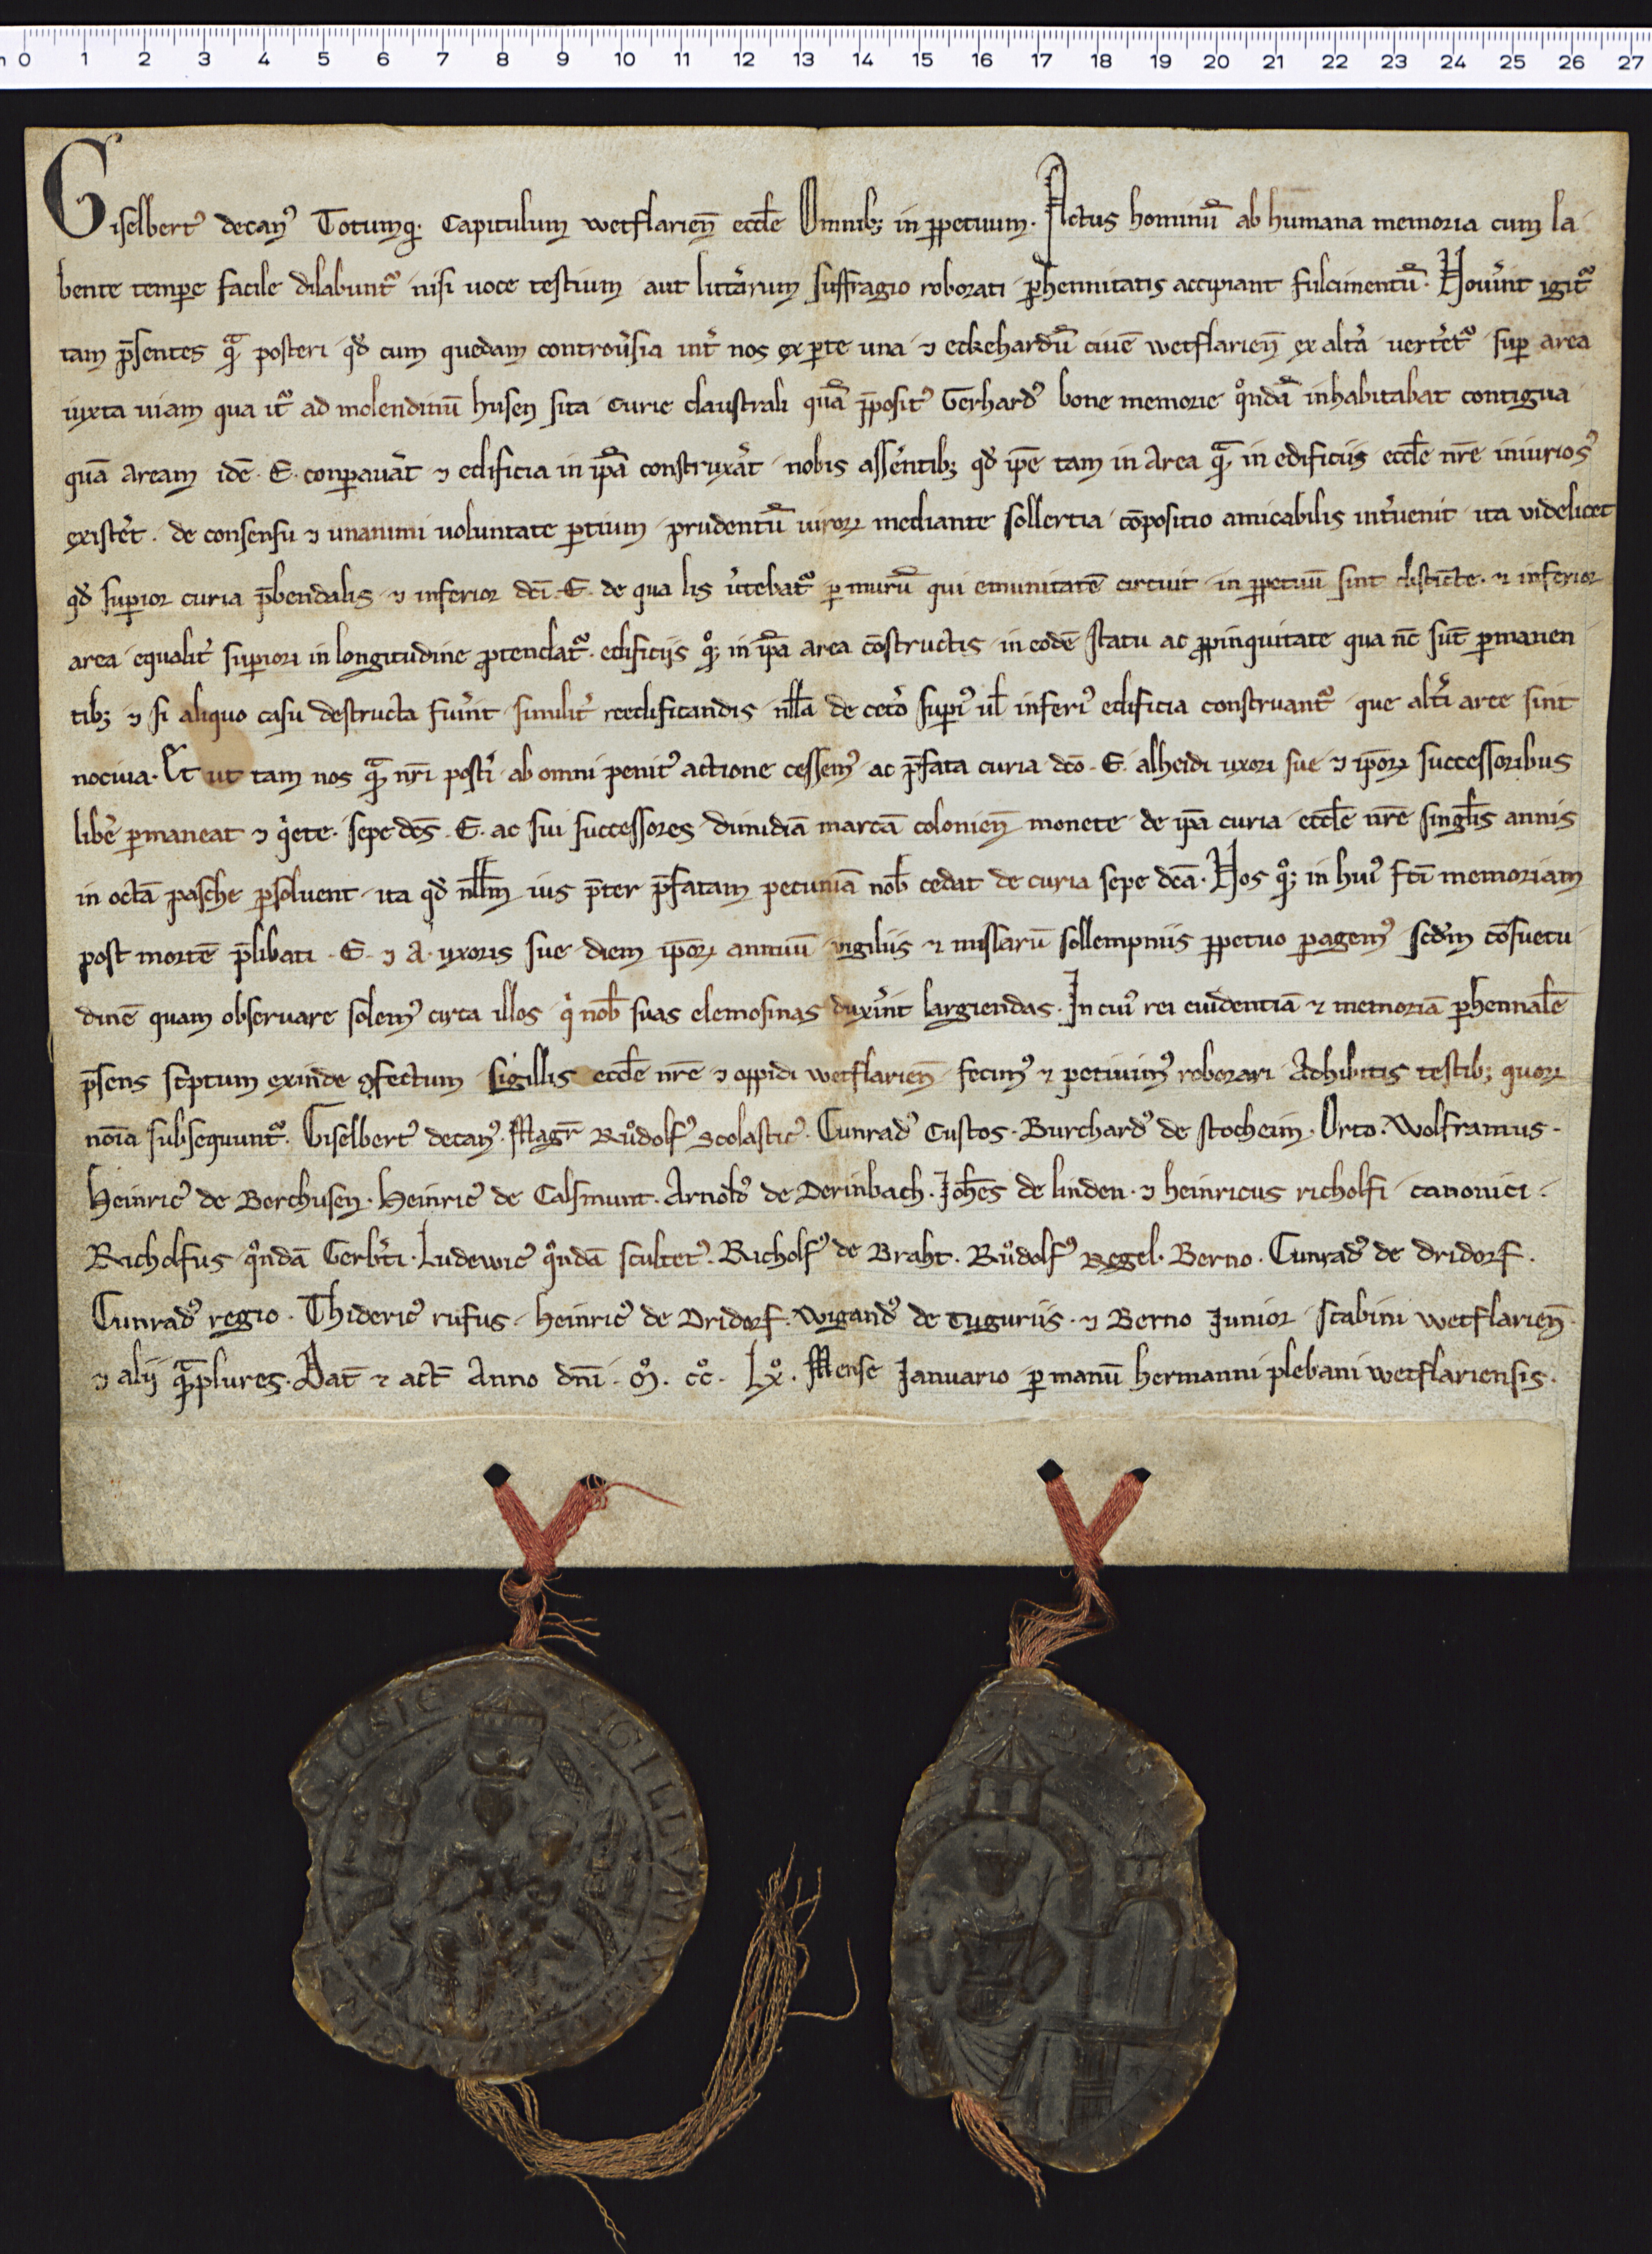 0 1 2 3 4 5 6 7 8 9 10 11 12 13 14 15 16 17 18 19 20 21 22 23 24 25 26 27
Giselbertꝰ decanꝰ Totumqꝫ Capitulum wetflarień eccl̄e Omnibꝫ in ꝑpetuum. Actus hominū ab humana memoria cum la
bente temꝑe facile dilabunt᷑ nisi uoce testium aut litt̓arum suffragio roborati ꝑhennitatis accipiant fulcimentū. Nou̓int igit᷑
tam p̄sentes qᵃ̄ posteri qd̓ cum quedam controu̓sia int̓ nos ex ꝑte una ⁊ eckehardū ciuē wetflarień ex alt̓a uert̓et᷑ suꝑ area
iuxta uiam qua it᷑ ad molendinū husen sita curie claustrali quā p̄positꝰ Gerhardꝰ bone memorie qͦndā inhabitabat contigua
quā aream idē .E. conꝑauāt ⁊ edificia in ip̄a construxāt nobis asserentibꝫ qd̓ ip̄e tam in area qᵃ̄ in edificiis eccl̄e nr̄e iniuriosꝰ
exist̓et. de consensu ⁊ unanimi uoluntate ꝑtium prudentū uiroꝝ mediante sollertia cōpositio amicabilis int̓uenit ita videlicet
qd̓ suꝑior curia p̄bendalis ⁊ inferior dc̄i .E. de qua lis ūtebat᷑ ꝑ murū qui emunitatē circuit in ꝑpetuū sint distīcte. ⁊ inferior
area equalit̓ suꝑiori in longitudine ꝓtendat᷑. edificiis qꝫ in ip̄a area cōstructis in eodē statu ac ꝓpinquitate qua nc̄ sūt ꝑmanen
tibꝫ ⁊ si aliquo casu destructa fu̓int similit̓ reedificandis nll̄a de cet̓o suꝑiꝰ ul̄ inferiꝰ edificia construant᷑ que alt̓i aree sint
nociua. Et ut tam nos qᵃ̄ nr̄i post̓i ab omni penitꝰ actione cessemꝰ ac p̄fata curia dc̄o .E. alheidi uxori sue ⁊ ip̄oꝝ successoribus
lib̓e ꝑmaneat ⁊ qͥete. sepe dc̄s .E. ac sui successores dimidiā marcā colonień monete de ip̄a curia eccl̄e nr̄e singl̄is annis
in octā pasche ꝑsoluent ita qd̓ nll̄m ius p̄ter p̄fatam pecuniā nob̄ cedat de curia sepe dc̄a. Nos qꝫ in huiꝰ fc̄i memoriam
post mortē p̄libati .E. ⁊ A. uxoris sue diem ip̄oꝝ annuū vigiliis ⁊ missarū sollempniis ꝑpetuo ꝑagemꝰ scd̄m cōsuetu
dinē quam obseruare solemꝰ circa illos qͥ nob̄ suas elemosinas dux̓int largiendas. In cuiꝰ rei euidentiā ⁊ memoriā ꝑhennalē
p̄sens sc̓ptum exinde ꝯfectum sigillis eccl̄e nr̄e ⁊ oppidi wetflarień fecimꝰ ⁊ petiuimꝰ roborari Adhibitis testibꝫ quoꝝ
noīa subsequunt᷑. Giselbertꝰ decanꝰ. Magr̄ Růdolfꝰ Scolasticꝰ. Cunradꝰ Custos. Burchardꝰ de stocheim. Orto. Wolframus.
Heinricꝰ de Berchusen. Heinricꝰ de Calsmunt. Arnoldꝰ de Derinbach. Joh̄es de linden. ⁊ heinricus richolfi canonici.
Richolfus qͦndā Gerb̓ti. Ludewicꝰ qͦndā scultetꝰ. Richolfꝰ de Braht. Růdolfꝰ Regel. Berno. Cunradꝰ de dridorf.
Cunradꝰ regio. Thidericꝰ rufus. Heinricꝰ de Dridorf. Wigandꝰ de Tuguriis. ⁊ Berno Junior scabini wetflarień.
⁊ alij qᵃ̄plures. Dat̄ ⁊ act̄ Anno dn̄i .Mͦ. ccͦ. Lxͦ. Mense Januario ꝑ manū hermanni plebani wetflariensis.
SIGILLVM